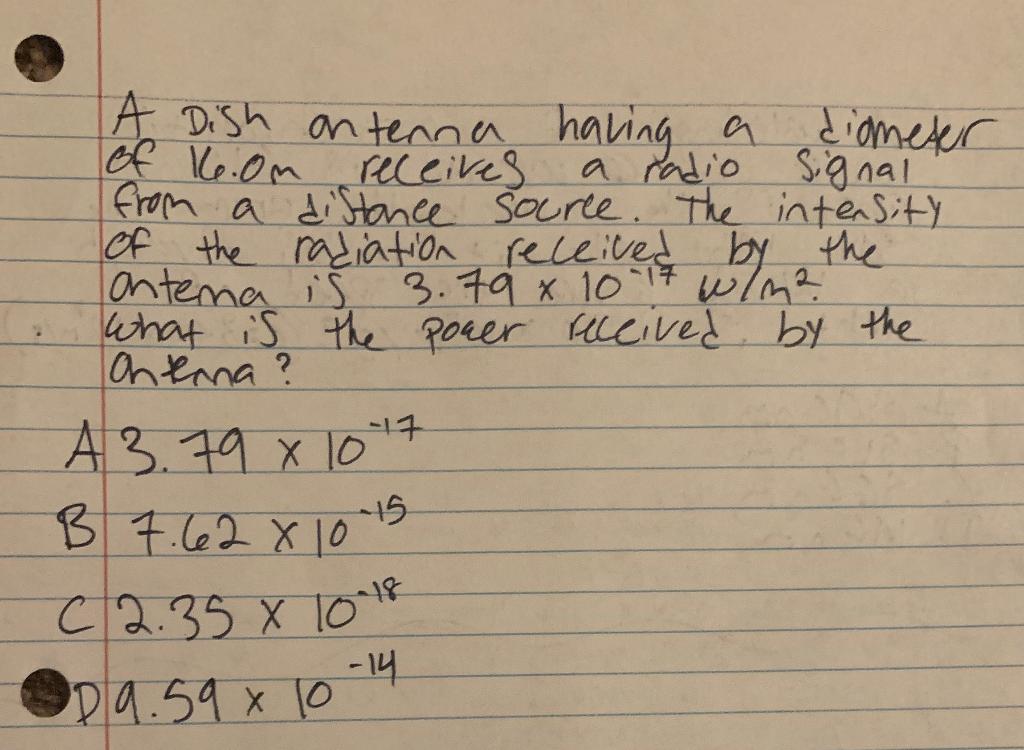 A Dish antenna having a diameter
of 16.0m receives a radio signal
from a distance source. The intensity
of the radiation received by the
antenna is 3.79 x 10^-17 w/m².
what is the power received by the
antenna?
A 3.79 x 10^-17
B 7.62 x 10^-15
C 2.35 x 10^-18
D 9.59 x 10^-14